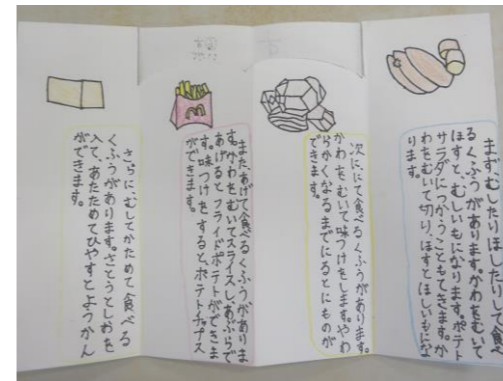 まず、むしたりほしたりして食べ
るくふうがあります。かわをむいて
ほすと、むしいもになります。ポテト
サラダにつかうこともできます。か
わをむいて切り、ほすとほしいもにな
ります。
次に、にて食べるくふうがあります。
かわをむいて味つけをします。やわ
らかくなるまでにるとにものが
できます。
また、あげて食べるくふうがありま
す。かわをむいてスライスし、あぶらで
あげると、フライドポテトができま
す。味つけをすると、ポテトチップス
ができます。
さらに、むしてかためて食べる
くふうがあります。さとうとしおを
入て、あたためてひやすとようかん
ができます。